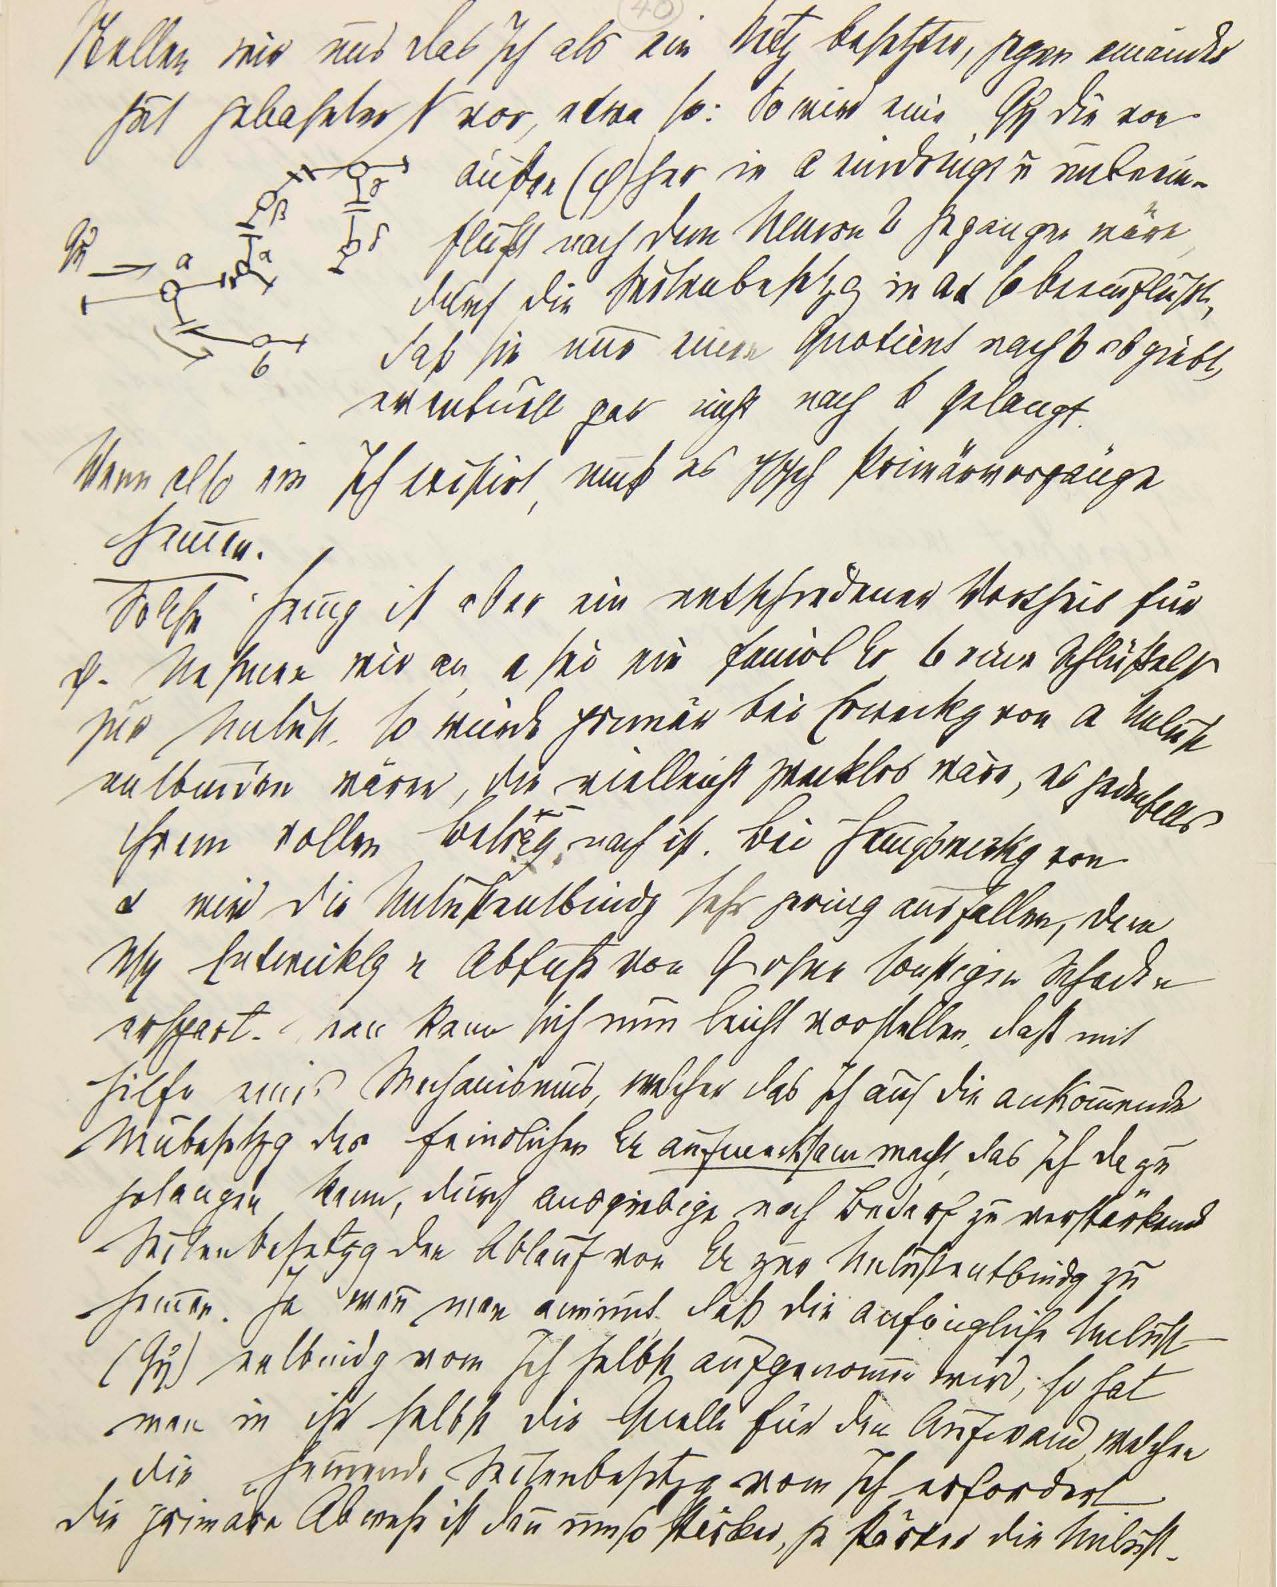 40
Stellen wir uns das Ich als ein Netz besetzter, gegen einander
gut gebahnter N vor, etwa so: So wird eine Qἠ die von
außen (φ) her in a eindringt u unbeein-
flußt nach dem Neuron b gegangen wäre,
durch die Seitenbesetzg in aα so beeinflußt,
daß sie nur einen Quotient nach b abgiebt,
eventuell gar nicht nach b gelangt.
Qἠ
a
b
α
β
γ
δ
Wenn also ein Ich existirt, muß es psych Primärvorgänge
hem̅en.
Solche Hem̅g ist aber ein entschiedener Vortheil für
ψ. Nehmen wir an, a sei ein feindl Er b eine Schlüssel N
zur Unlust, so würde primär bei Erweckg von a Unlust
entbunden werden, die vielleicht zwecklos wäre, es jedenfalls
ihrem vollen Betrag nach ist. Bei Hem̅gswirkg von
α wird die Unlustentbindg sehr gering ausfallen, dem
Nsy Entwicklg u Abfuhr von Q ohne sonstigen Schaden
erspart. Man kann sich nun leicht vorstellen, daß mit
Hilfe eines Mechanismus, welcher das Ich auf die ankom̅ende
Neubesetzg des feindlichen Er aufmerksam macht, das Ich dazu
gelangen kann, durch ausgiebige nach Bedarf zu verstärkend
Seitenbesetzg den Ablauf vom Er zur Unlustentbindg zu
hem̅en. Ja wen̅ man anim̅t, daß die anfängliche Unlust
(Qἠ) entbindg vom Ich selbst aufgenom̅en wird, so hat
man in ihr selbst die Quelle für den Aufwand, welchen
die hem̅ende Seitenbesetzg vom Ich erfordert
die primäre Abwehr ist dan̅ umso stärker, je stärker die Unlust.